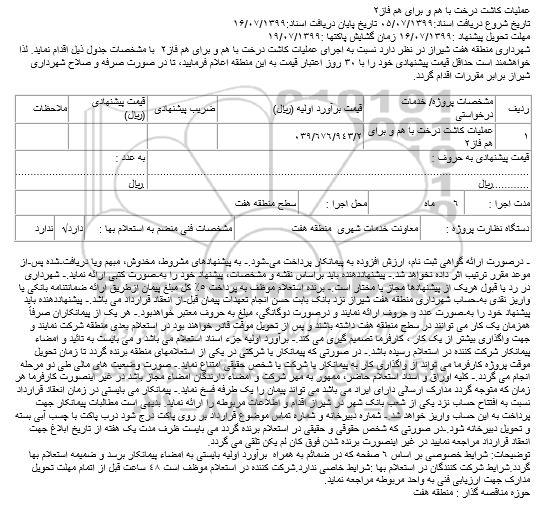 عملیات کاشت درخت با هم و برای هم فاز۲
تاریخ شروع دریافت اسناد:۰۵/۰۷/۱۳۹۹ تاریخ پایان دریافت اسناد:۱۶/۰۷/۱۳۹۹
مهلت تحویل پیشنهاد :۱۶/۰۷/۱۳۹۹ زمان گشایش پاکتها :۱۹/۰۷/۱۳۹۹
شهرداری منطقه هفت شیراز در نظر دارد نسبت به اجرای عملیات کاشت درخت با هم و برای هم فاز۲ با مشخصات جدول ذیل اقدام نماید. لذا
خواهشمند است حداقل قیمت پیشنهادی خود را با ۳۰ روز اعتبار قیمت به این منطقه اعلام فرمایید، تا در صورت صرفه و صلاح شهرداری
شیراز برابر مقررات اقدام گردد.
ردیف مشخصات پروژه/ خدمات درخواستی قیمت برآورد اولیه (ریال) ضریب پیشنهادی قیمت پیشنهادی (ریال) ملاحظات
۱ عملیات کاشت درخت با هم و برای هم فاز۲ ۰۳۹/۶۷۶/۹۴۳/۲
قیمت پیشنهادی به حروف : به عدد :
............ریال ریال
مدت اجرا : ۶ ماه محل اجرا : سطح منطقه هفت
دستگاه نظارت پروژه : معاونت خدمات شهری منطقه هفت مشخصات فنی منضم به استعلام بها : دارد√ ندارد
- درصورت ارائه گواهی ثبت نام، ارزش افزوده به پیمانکار پرداخت می‌شود.- به پیشنهادهای مشروط، مخدوش، مبهم ویا دریافت‌شده پس‌از
موعد مقرر ترتیب اثر داده نخواهد شد.- پیشنهاددهنده باید براساس نقشه و مشخصات، پیشنهاد خود را به‌صورت کتبی ارائه نماید.- شهرداری
در رد یا قبول هریک از پیشنهادها مجاز یا مختار است .- برنده استعلام موظف به پرداخت ۵٪ کل مبلغ پیمان ازطریق ارائه ضمانتنامه بانکی یا
واریز نقدی به‌حساب شهرداری منطقه هفت شیراز نزد بانک بابت حسن انجام تعهدات پیمان قبل‌از انعقاد قرارداد می باشد.- پیشنهاددهنده باید
پیشنهاد خود را به‌صورت عدد و حروف ارائه نمایند و درصورت دوگانگی، مبلغ به حروف معتبر خواهدبود.- هر یک از پیمانکاران صرفاً
همزمان یک کار می توانند در سطح منطقه هفت داشته باشند و پس از تحویل موقت قادر خواهند بود در استعلام بعدی منطقه شرکت نمایند و
جهت واگذاری بیشتر از یک کار ، کارفرما تصمیم گیری می کند.- برآورد اولیه جزء اسناد استعلام می باشد و می بایست به تائید و امضاء
پیمانکار شرکت کننده در استعلام رسیده باشد.- در صورتی که پیمانکار یا شرکتی در یکی از استعلامهای منطقه برنده گردد تا زمان تحویل
موقت پروژه کارفرما می تواند از واگذاری کار به پیمانکار یا شرکت یا شخص حقیقی امتناع نماید.- صورت وضعیت های مالی طی دو مرحله
انجام می گردد.- کلیه اوراق و اسناد استعلام حاضر، ممهور به مهر شرکت و امضاء دارندگان امضاء مجاز باشد در غیر اینصورت کارفرما هر
زمان که متوجه گردد مدارک ارسالی دارای ایراد می باشد می تواند پیمان را یک طرفه فسخ نماید.- پیمانکار می بایستی در زمان انعقاد قرارداد
نسبت به افتتاح حساب نزد یکی از شعب بانک شهر در شیراز اقدام و اطلاعات مربوطه را ارائه نماید. بدیهی است مطالبات پیمانکار جهت
پرداخت به این حساب واریز خواهد شد.- شماره دبیرخانه و شماره تماس موضوع قرارداد بر روی پاکت درج شود درب پاکت با چسب آبی بسته
و تحویل دبیرخانه شود.-در صورتی که شخص حقوقی و حقیقی در استعلام برنده گردد می بایست ظرف مدت یک هفته از تاریخ ابلاغ جهت
انعقاد قرارداد مراجعه نمایید در غیر اینصورت برنده شدن فوق کان لم یکن تلقی می گردد.
توضیحات: شرایط خصوصی بر اساس ۶ صفحه که در ضمائم به همراه برآورد اولیه بایستی به امضاء پیمانکار برسد و ضمیمه استعلام بها
گردد.شرایط شرکت کنندگان در استعلام بها :شرایط خاصی ندارد.شرکت کننده در استعلام موظف است ۴۸ ساعت قبل از اتمام مهلت تحویل
مدارک جهت ارزیابی فنی به واحد مربوطه مراجعه نماید.
حوزه مناقصه گذار : منطقه هفت